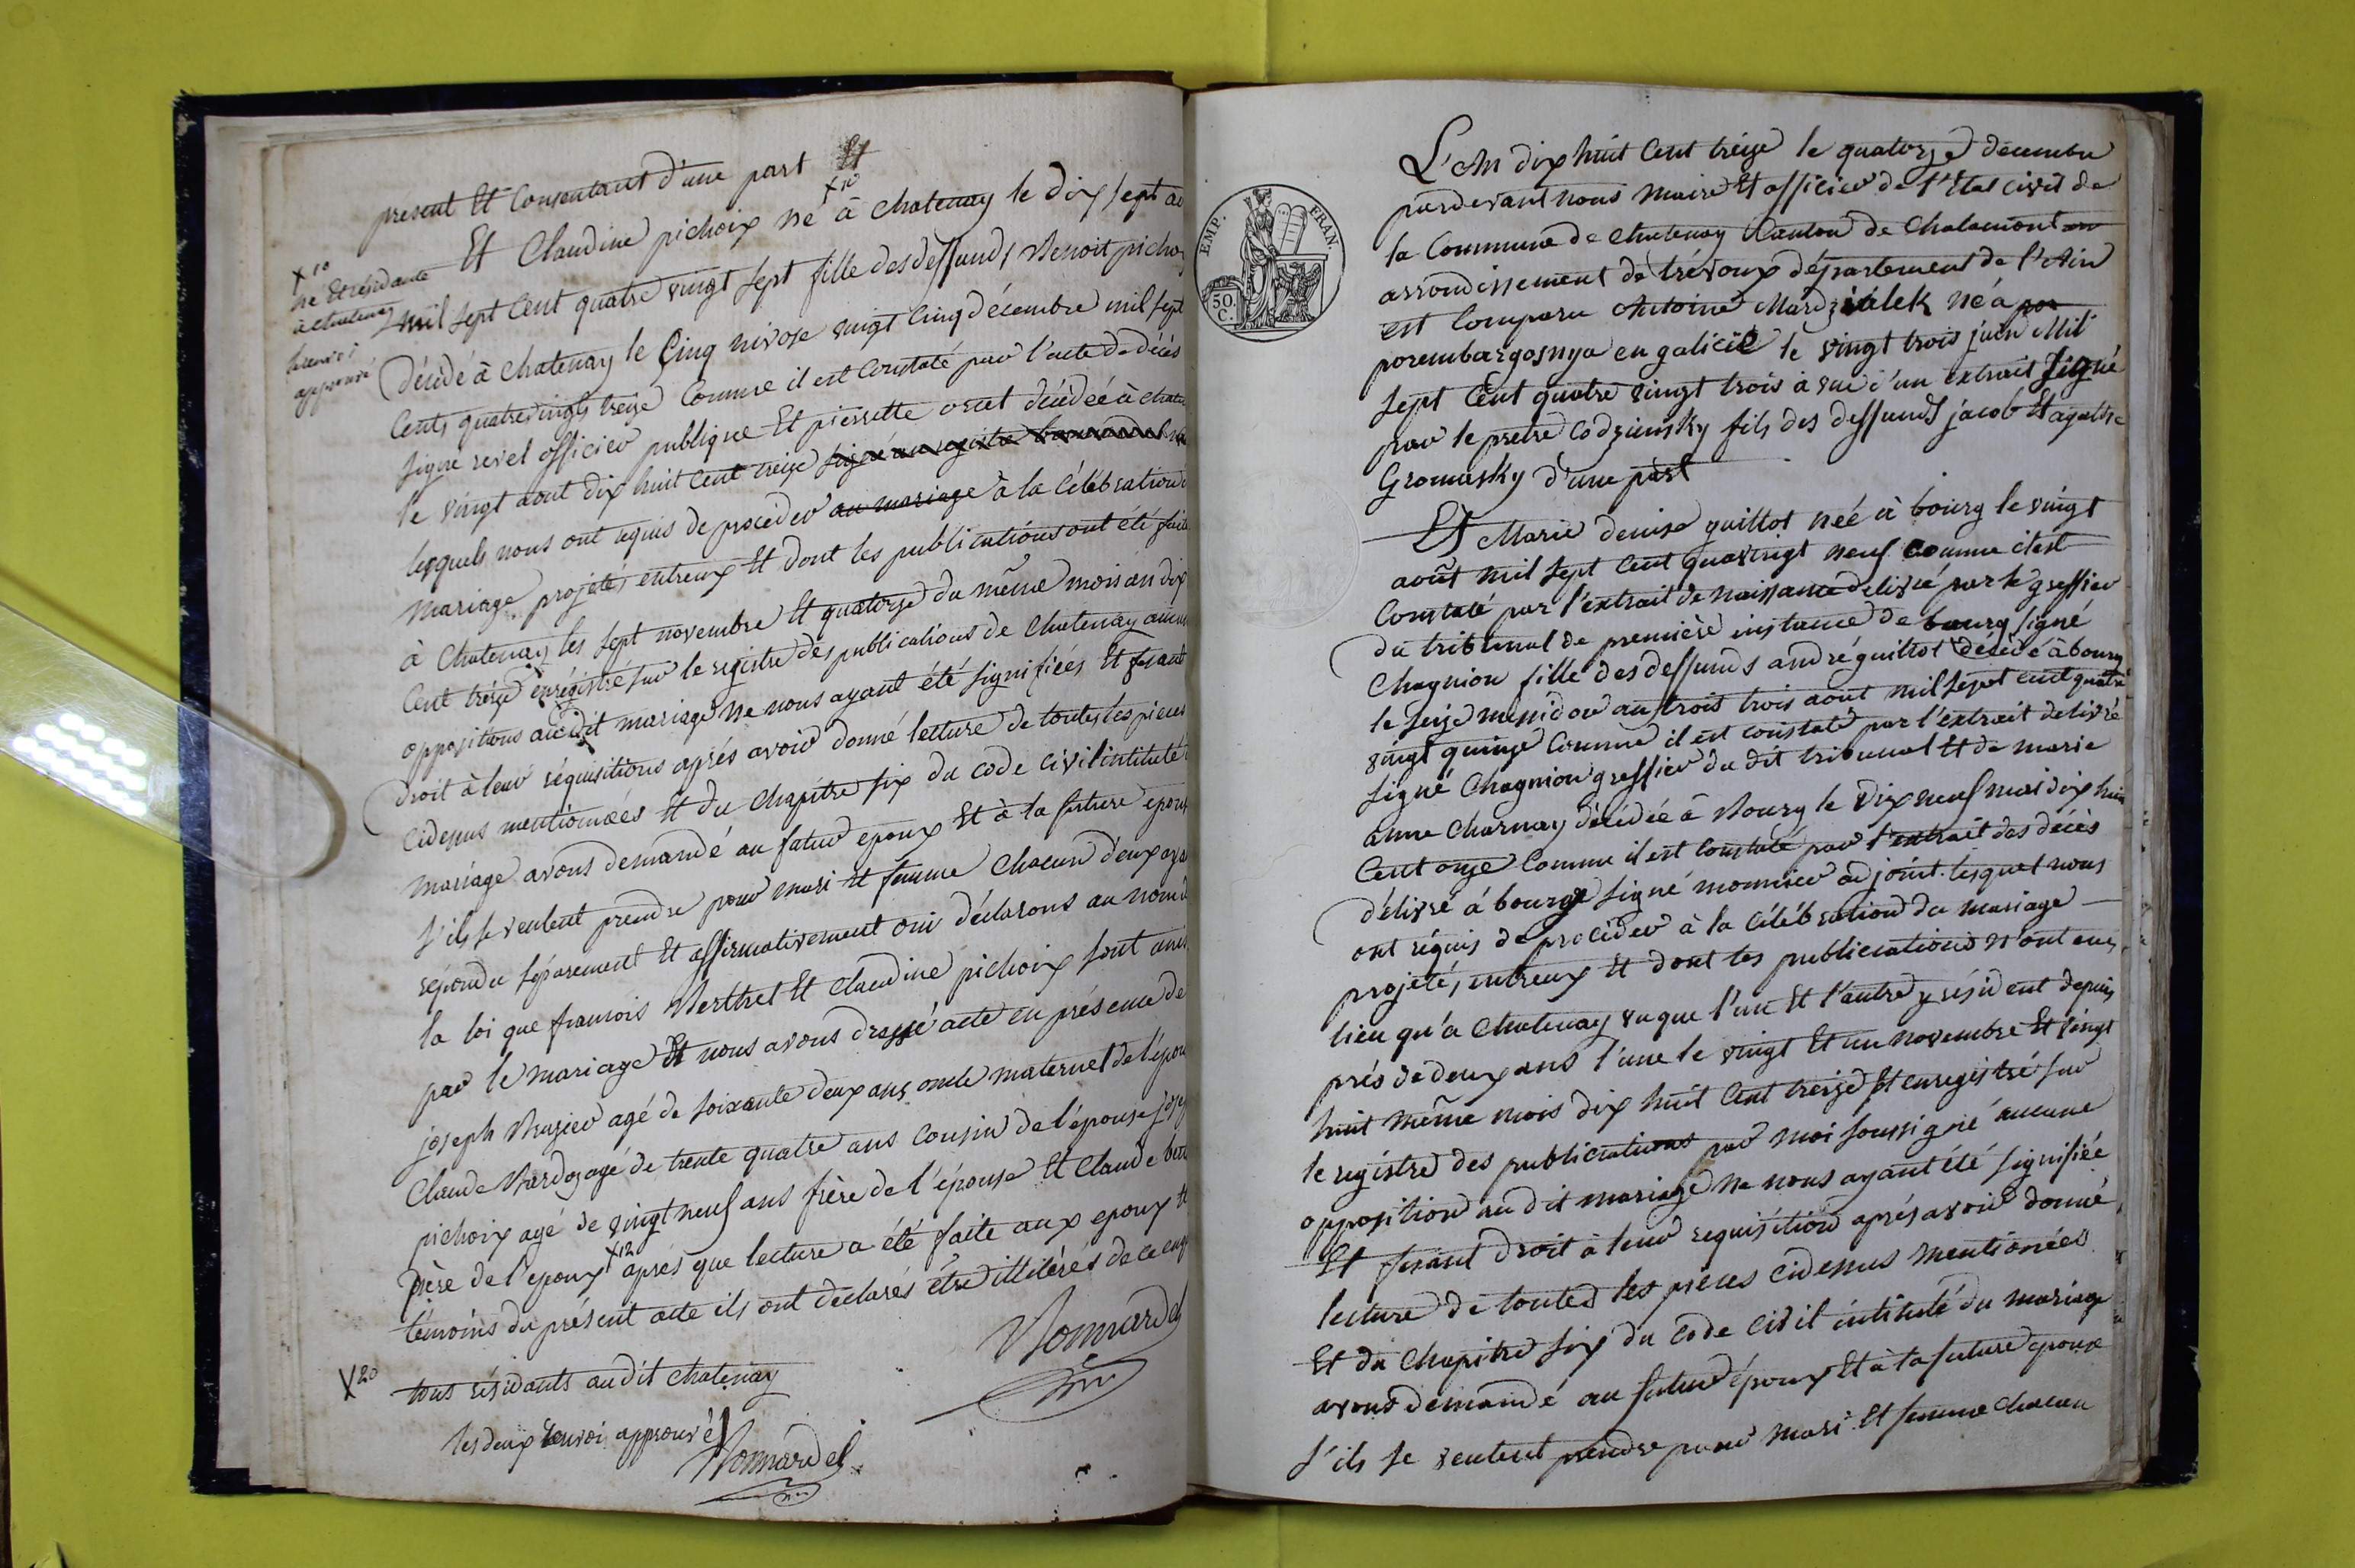 present Et Consentant d'une part Et
x 10
Et Claudine pichoix né à chatenay le dix sept
x 10
né Et résidante
à chatenay
renvoi
approuvé
mil sept Cent quatre vingt sept fille des deffunds Benoit picho
Décédé à chatenay le Cinq nivose vingt Cinq décembre mil sept
Cents quatrevingts treize Comme il est Constaté par l'acte de décès
signé revel officier publique Et pierrette décédée à chate
le vingt aout dix huit Cent treize signé au registre
lesquels nous ont requis de procéder au mariage à la Célébration
Mariage projetés entreux Et dont les publications ont été faite
à Chatenay les sept novembre Et quatorze du même mois an dix
Cent treize enrégistré sur le registre des publications de Chatenay aucun
oppositions audit mariage Ne nous ayant été signifiées Et fesant
Droit à leur réquisitions après avoir donné lecture de toutes les pieces
Cidessus mentionnées Et du Chapitre six du code civil intitulé
Mariage avons demandé au futur epoux Et à la future epous
s'ils se veulent prendre pour mari Et femme Chacun d'eux aya
répondu séparement Et affirmativement oui déclarons au nom d
la loi que francois Berthet Et Claudine pichoix sont unis
par le mariage Et nous avons dressé acte en présence de
joseph agé de soixante deux ans oncle maternel de l'épou
Claude agé de trente quatre ans Cousin de l'épouse jose
pichoix agé de vingt neuf ans frère de l'épouse Et Claude bert
père de l'epoux x12 après que lecture a été faite aux epoux Et
témoins du présent acte ils ont declarés être illitérés de ce enqu
Bonnardel
X 20 tous résidants audit chatenay
les deux renvoi approuvé
Bonnardel
L'An dix huit Cent treize le quatorze décembre
pardevant nous maire Et officier de l'Etat civil de
la Commune de Chatenay Canton de Chalamont
arrondissement de trévoux département de l'Ain
EMP. FRAN.
50. C.
est Comparu Antoine Mardzialek né a por
porembazgosnya en galicie le vingt trois juin Mil
sept Cent quatre vingt trois à vue d'un extrait signé
par le pretre Codziensky fils des deffunds jacob Et agathe
Gromusky d'une part
Et Marie denise guillot née à bourg le vingt
août mil sept Cent quavringt neuf comme il est
Constaté par l'extrait de naissance delivré par le greffier
du tribunal de première instance de bourg signé
Chagnion fille des deffunds andré guillot décédé à bourg
le seize au trois trois aout mil sept cent quatre
vingt quinze Comme il est constaté par l'extrait delivré
signé Chagnion greffier du dit tribunal Et de marie
anne Charnay décédée à Bourg le dix neuf mai dix huit
Cent onze Comme il est Constaté par l'extrait des décès
délivré à bourg signé monnier adjoint lesquel nous
ont réquis de procéder à la Célébration du mariage
projetés entreux Et dont les publications n'ont eues
lieu qu'à Chatenay vu que l'un Et l'autre y résident depuis
près de deux ans l'une le vingt Et un novembre Et vingt
huit même mois dix huit Cent treize Et enregistré sur
le registre des publications par moi soussigné aucune
opposition audit mariage Ne nous ayant été signifiée
Et fesant droit à leur requisition après avoir donné
lecture de toutes les pièces cidessus mentionées
Et du Chapitre six du Code Civil intitulé du mariage
avons demandé au futur époux Et à la future epouse
s'ils se veulent prendre pour mari Et femme Chacun